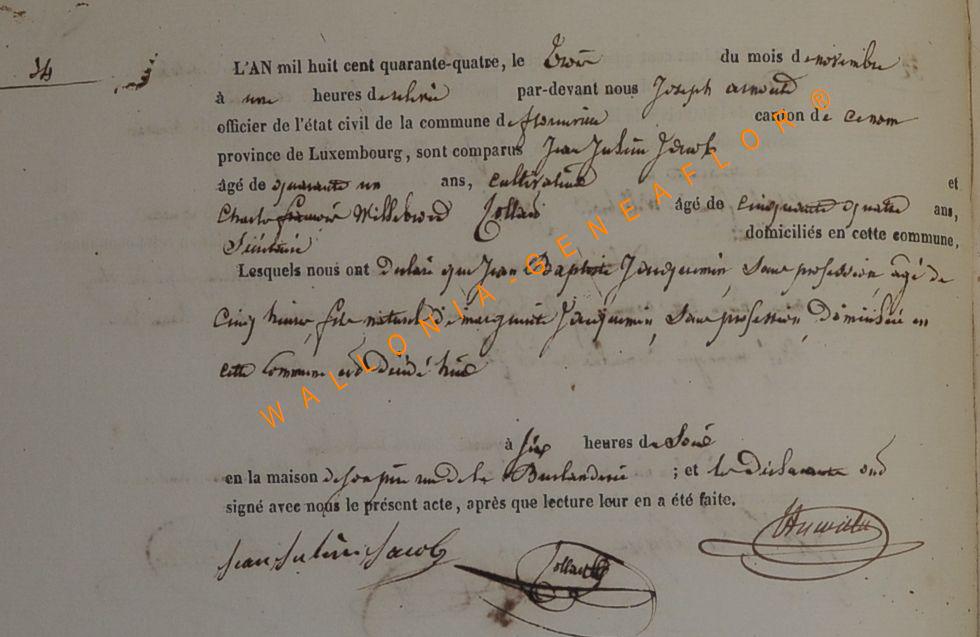 34
L'AN mil huit cent quarante-quatre, le trois du mois de novembre
à une heures de relevée par-devant nous Joseph Arnould
officier de l'état civil de la commune de canton de ce nom
province de Luxembourg, sont comparus Jean Julien Jacob
âgé de quarante un ans, cultivateur et
Charles François Willebrord Collard âgé de cinquante quatre ans,
domiciliés en cette commune,
Lesquels nous ont déclaré que Jean Baptiste Jacquemin, sans profession, âgé de
cinq heures, fils naturel de marguerite Jacquemin, sans profession, domiciliée en
cette commune est décédé hier
à six heures de Soir
en la maison de ; et les déclarants ont
signé avec nous le présent acte, après que lecture leur en a été faite.
Jean Julien Jacob
Collard
WALLONIA-GENEAFLOR®